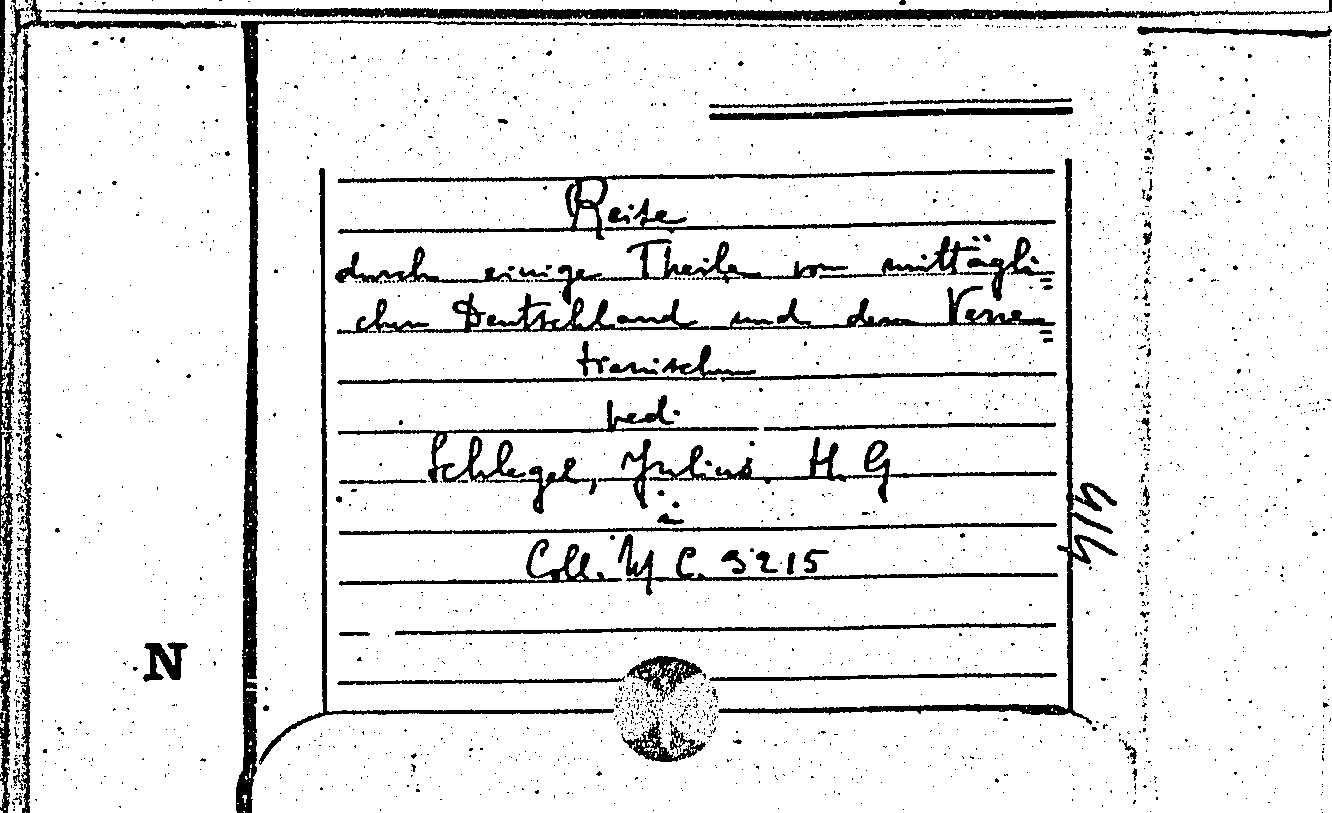 Reise
durch einige Theile vom mittägli=
chen Deutschland und dem Vene=
tianischen
ved:
Schlegel, Julius. H. G
i
Coll. M C. 9215
4/4
N